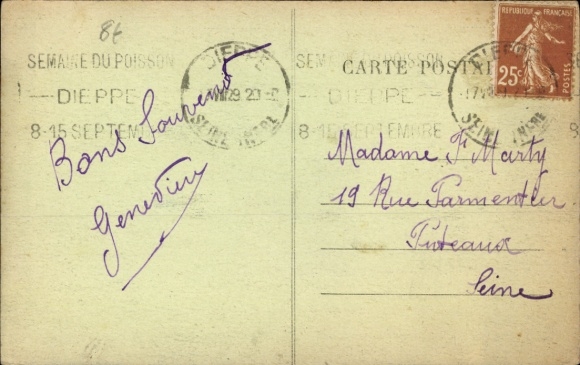 8f
SEMAINE DU POISSON
DIEPPE
8-15 SEPTEMBRE
DIEPPE
SEINE INFRE
Bons Souvenirs
Geneviève
CARTE POSTALE
REPUBLIQUE FRANÇAISE
25c
SEMAINE DU POISSON
DIEPPE
8-15 SEPTEMBRE
DIEPPE
SEINE INFRE
Madame F Marty
19 Rue Parmentier
Puteaux
Seine